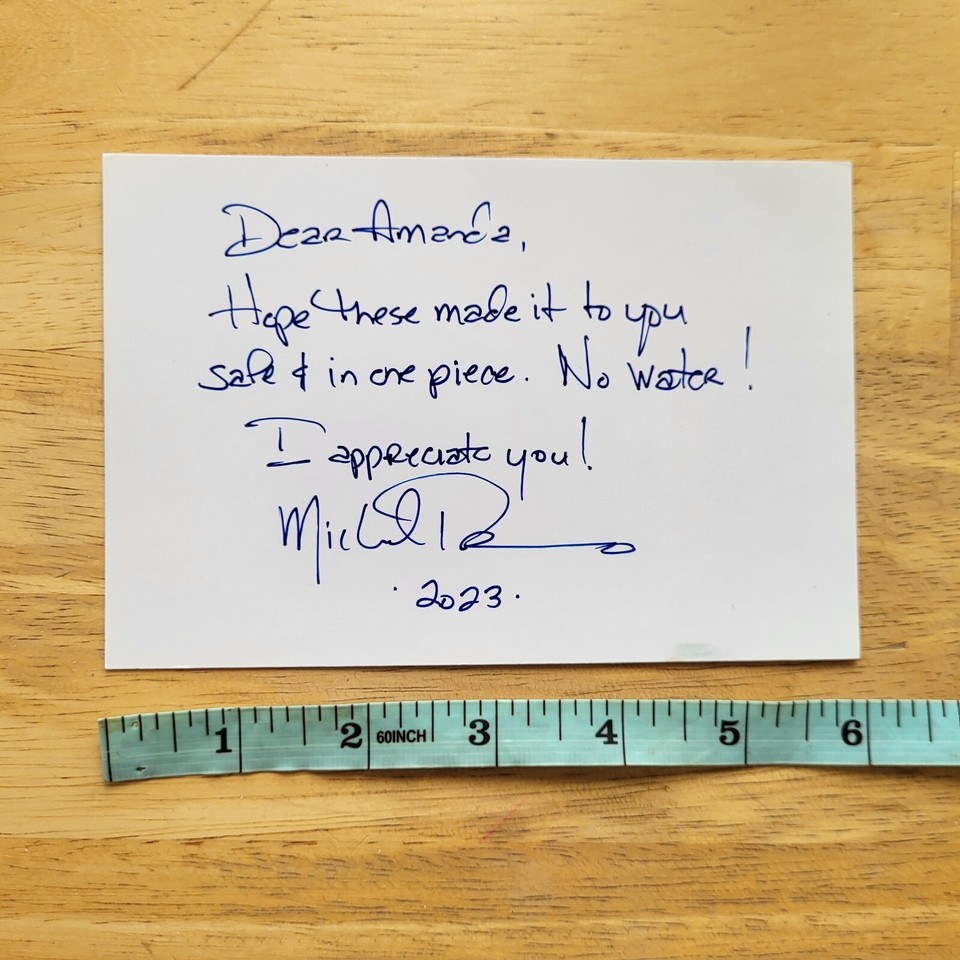 Dear Amanda,
Hope these made it to you
safe & in one piece. No water!
I appreciate you!
Michael
2023
1 2 60INCH 3 4 5 6